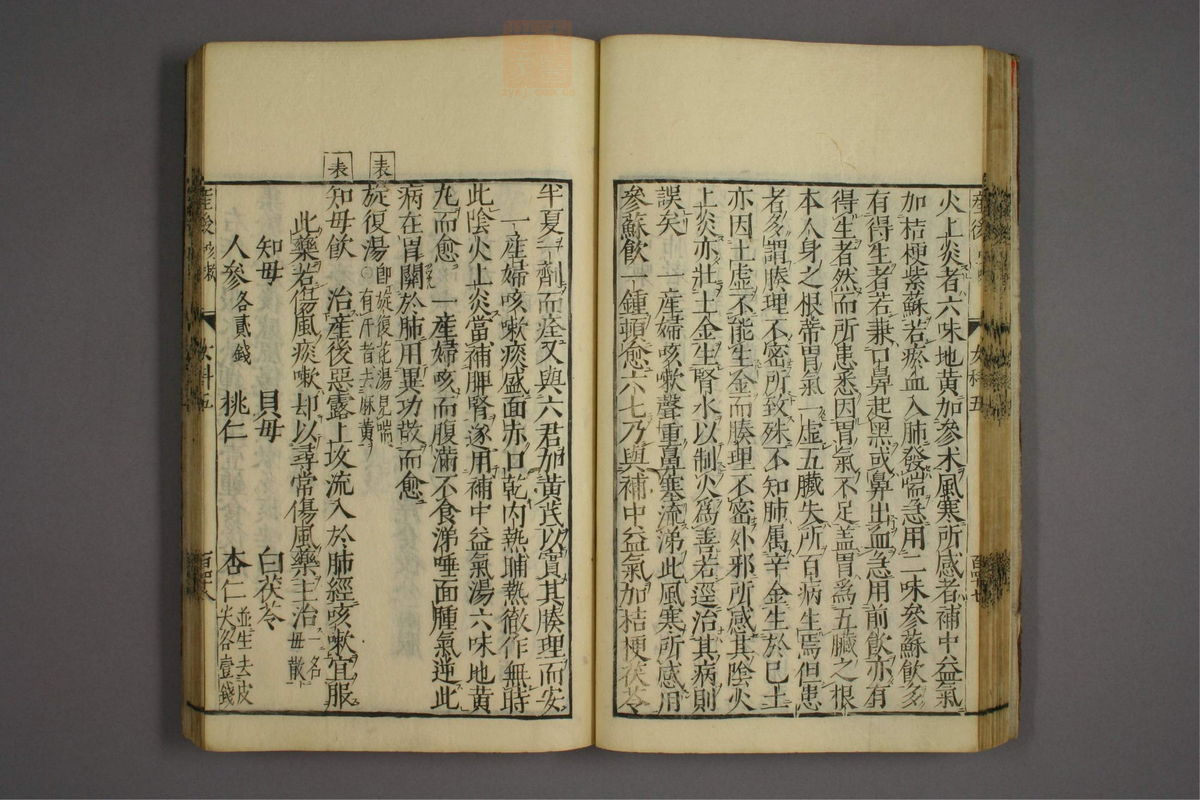 火上炎者六味地黄加參术風寒所感者補中益氣
加桔梗紫蘇若瘀血入肺發喘急用二味參蘇飲多
有得生者若兼口鼻起黑或鼻出血急用前飲亦有
得生者然而所患悉因胃氣不足盖胃爲五臟之根
本人身之根蒂胃氣一虚五臟失所百病生焉但患
者多謂腠理不密所致殊不知肺属辛金生於巳土
亦因土虚不能生金而腠理不密外邪所感其陰火
上炎亦壯土金生腎水以制火爲善若逕治其病則
誤矣 一産婦咳嗽聲重鼻塞流涕此風寒所感用
參蘇飲一鍾頓愈六七乃與補中益氣加桔梗茯苓
半夏一劑而痊又與六君加黄芪以實其腠理而安
一産婦咳嗽痰盛面赤口乾内熱晡熱徹作無時
此陰火上炎當補脾腎遂用補中益氣湯六味地黄
丸而愈 一産婦咳而腹滿不食涕唾面腫氣逆此
病在胃關於肺用異功散而愈
表
旋復湯 即旋復花湯見喘
有汗者去麻黄
表
知母飲 治産後惡露上攻流入於肺經咳嗽宜服
此藥若傷風痰嗽却以尋常傷風藥主治 一名
母散
知母 貝母 白茯苓
人參各貳錢 桃仁 杏仁 並生去皮
尖各壹錢
産後 咳嗽 女科五